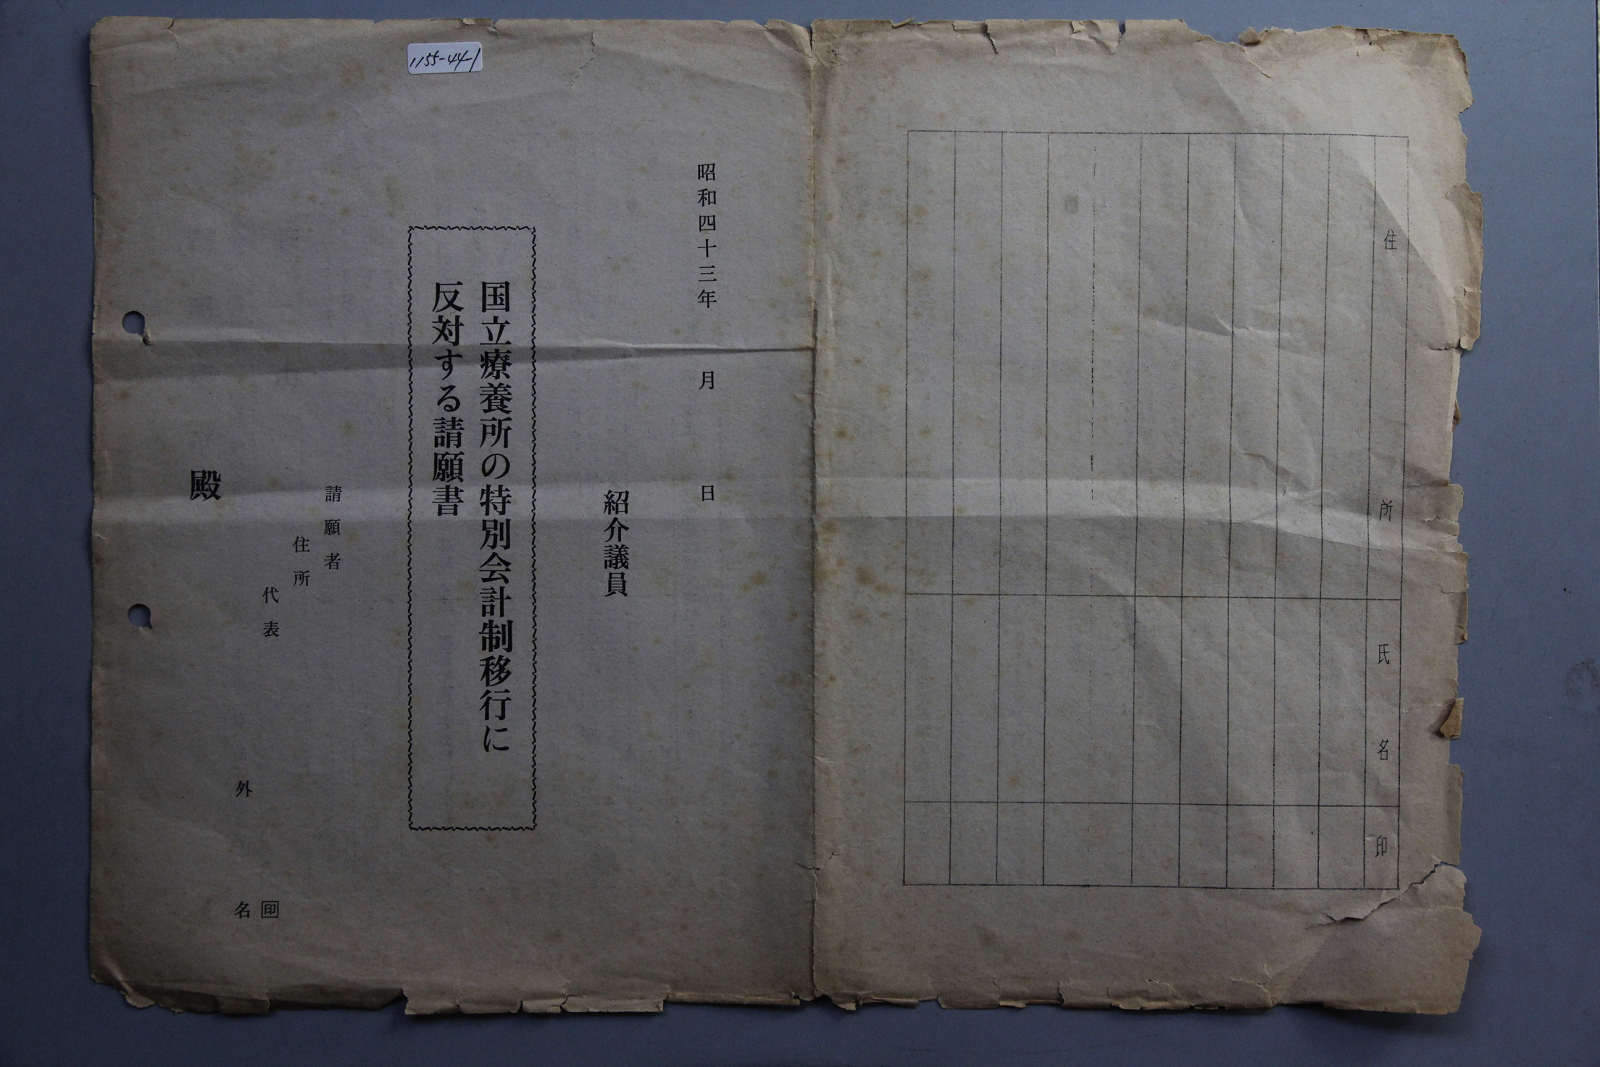 1155-44-1
住所
氏名
印
昭和四十三年 月 日
紹介議員
国立療養所の特別会計制移行に
反対する請願書
請願者
住所
代表 印
外 名
殿